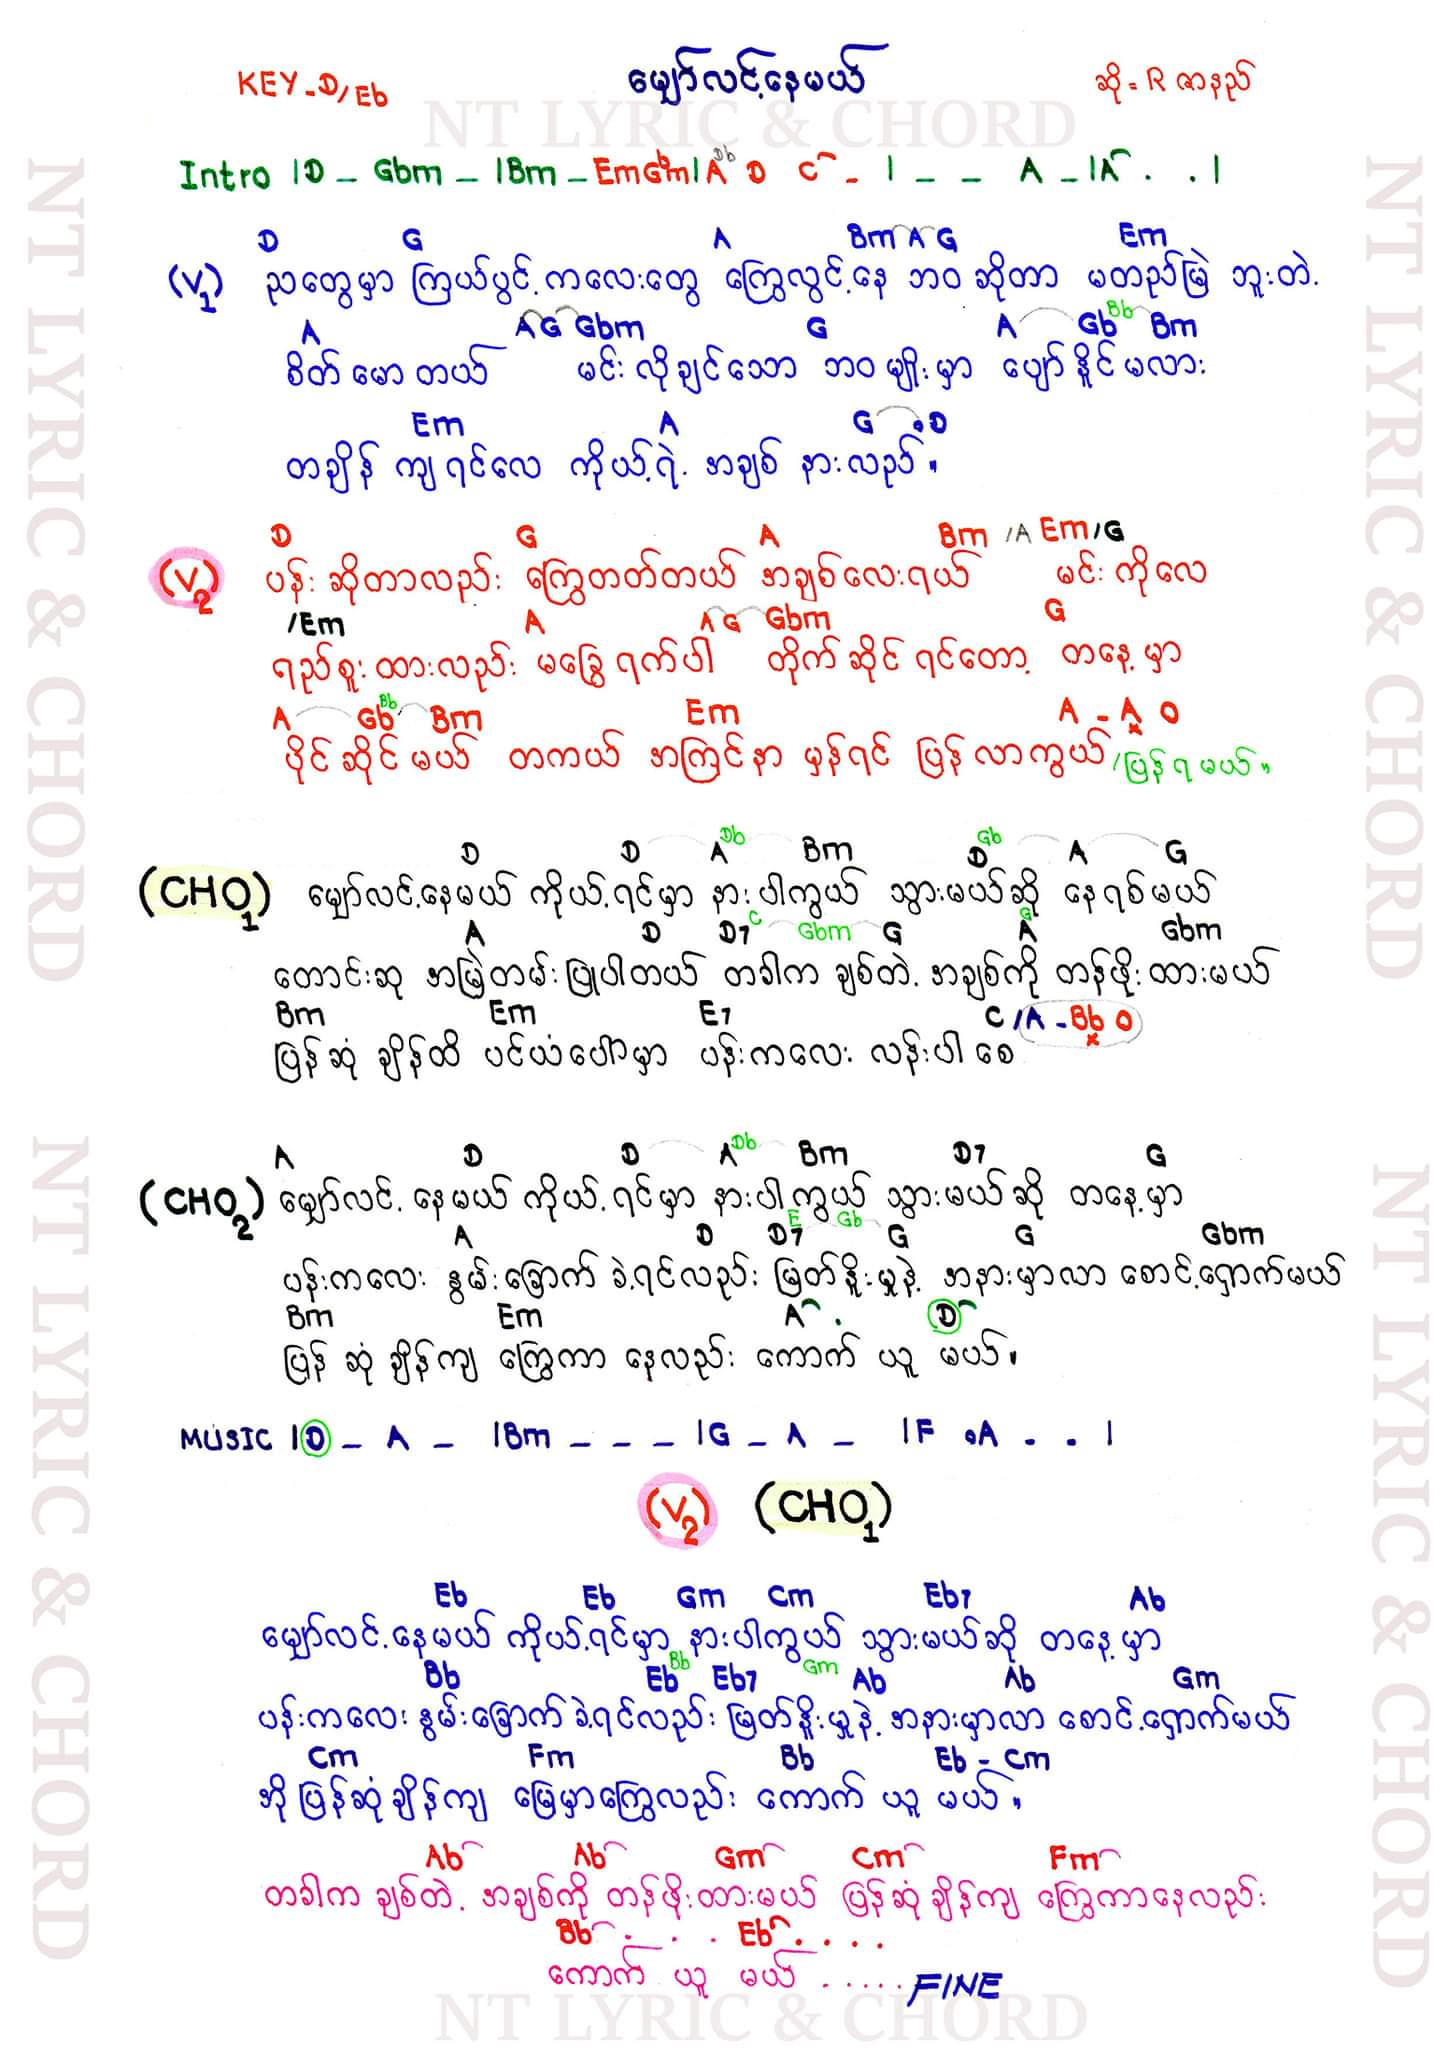 KEY-D/Eb မျှော်လင့်နေမယ် ဆို = R ဇာနည်
NT LYRIC & CHORD
Intro |D - Gbm - |Bm - Em Gbm |A Db D C - | - - A - |A . . |
D G A Bm A G Em
(V1) ညတွေမှာ ကြယ်ပွင့်ကလေးတွေ ကြွေလွင့်နေ ဘဝ ဆိုတာ မတည်မြဲ ဘူးတဲ့
A A G Gbm G A Gb Bb Bm
စိတ် မော တယ် မင်း လိုချင်သော ဘဝ မျိုးမှာ ပျော် နိူင် မလား
Em A G . D
တချိန် ကျရင်လေ ကိုယ့်ရဲ့ အချစ် နားလည်။
D G A Bm /A Em /G
(V2) ပန်း ဆိုတာလည်း ကြွေတတ်တယ် အချစ်လေးရယ် မင်း ကိုလေ
/Em A A G Gbm G
ရည်စူးထားလည်း မခြွေ ရက်ပါ တိုက်ဆိုင် ရင်တော့ တနေ့မှာ
A Gb Bb Bm Em A - A x O
ပိုင်ဆိုင်မယ် တကယ် အကြင်နာ မှန်ရင် ပြန် လာကွယ် /ပြန်ရမယ်။
D D A Db Bm D Gb A G
(CHO1) မျှော်လင့်နေမယ် ကိုယ့်ရင်မှာ နားပါကွယ် သွားမယ်ဆို နေရစ်မယ်
A D D7 C Gbm G A G Gbm
တောင်းဆု အမြဲတမ်းပြုပါတယ် တခါက ချစ်တဲ့ အချစ်ကို တန်ဖိုးထားမယ်
Bm Em E7 C /A - Bb x O
ပြန်ဆုံ ချိန်ထိ ပင်ယံပေါ်မှာ ပန်းကလေး လန်းပါ စေ
A D D A Db Bm D7 G
(CHO2) မျှော်လင့် နေမယ် ကိုယ့်ရင်မှာ နားပါကွယ် သွားမယ်ဆို တနေ့မှာ
A D D7 E Gb G G Gbm
ပန်းကလေး နွမ်းခြောက် ခဲ့ရင်လည်း မြတ်နိူးမှုနဲ့ အနားမှာလာ စောင့်ရှောက်မယ်
Bm Em A . D
ပြန် ဆုံချိန်ကျ ကြွေကာ နေလည်း ကောက် ယူ မယ်။
MUSIC |D - A - |Bm - - - |G - A - |F . A . . |
(V2) (CHO1)
Eb Eb Gm Cm Eb7 Ab
မျှော်လင့်နေမယ် ကိုယ့်ရင်မှာ နားပါကွယ် သွားမယ်ဆို တနေ့မှာ
Bb Eb Bb Eb7 Gm Ab Ab Gm
ပန်းကလေး နွမ်းခြောက် ခဲ့ရင်လည်း မြတ်နိူးမှုနဲ့ အနားမှာလာ စောင့်ရှောက်မယ်
Cm Fm Bb Eb - Cm
အို ပြန်ဆုံချိန်ကျ မြေမှာကြွေလည်း ကောက် ယူ မယ်။
Ab Ab Gm Cm Fm
တခါက ချစ်တဲ့ အချစ်ကို တန်ဖိုးထားမယ် ပြန်ဆုံချိန်ကျ ကြွေကာနေလည်း
Bb . . . Eb . . . .
ကောက် ယူ မယ် ..... FINE
NT LYRIC & CHORD
NT LYRIC & CHORD
NT LYRIC & CHORD
NT LYRIC & CHORD
NT LYRIC & CHORD